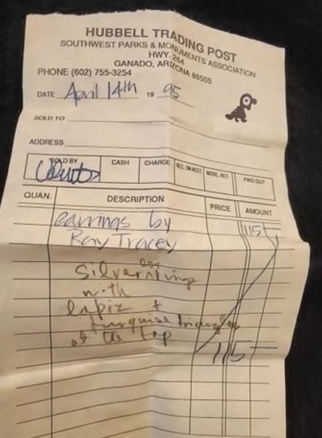 HUBBELL TRADING POST
SOUTHWEST PARKS & MONUMENTS ASSOCIATION
HWY. 264
GANADO, ARIZONA 86505
PHONE (602) 755-3254
DATE April 14th 19 95
SOLD TO
ADDRESS
SOLD BY CASH CHARGE REC. ON ACCT. MDSE. RET. PAID OUT
QUAN. DESCRIPTION PRICE AMOUNT
earrings by 115
Ray Tracey
Silver
with
lapiz +
turquoise triangles
at the top
115